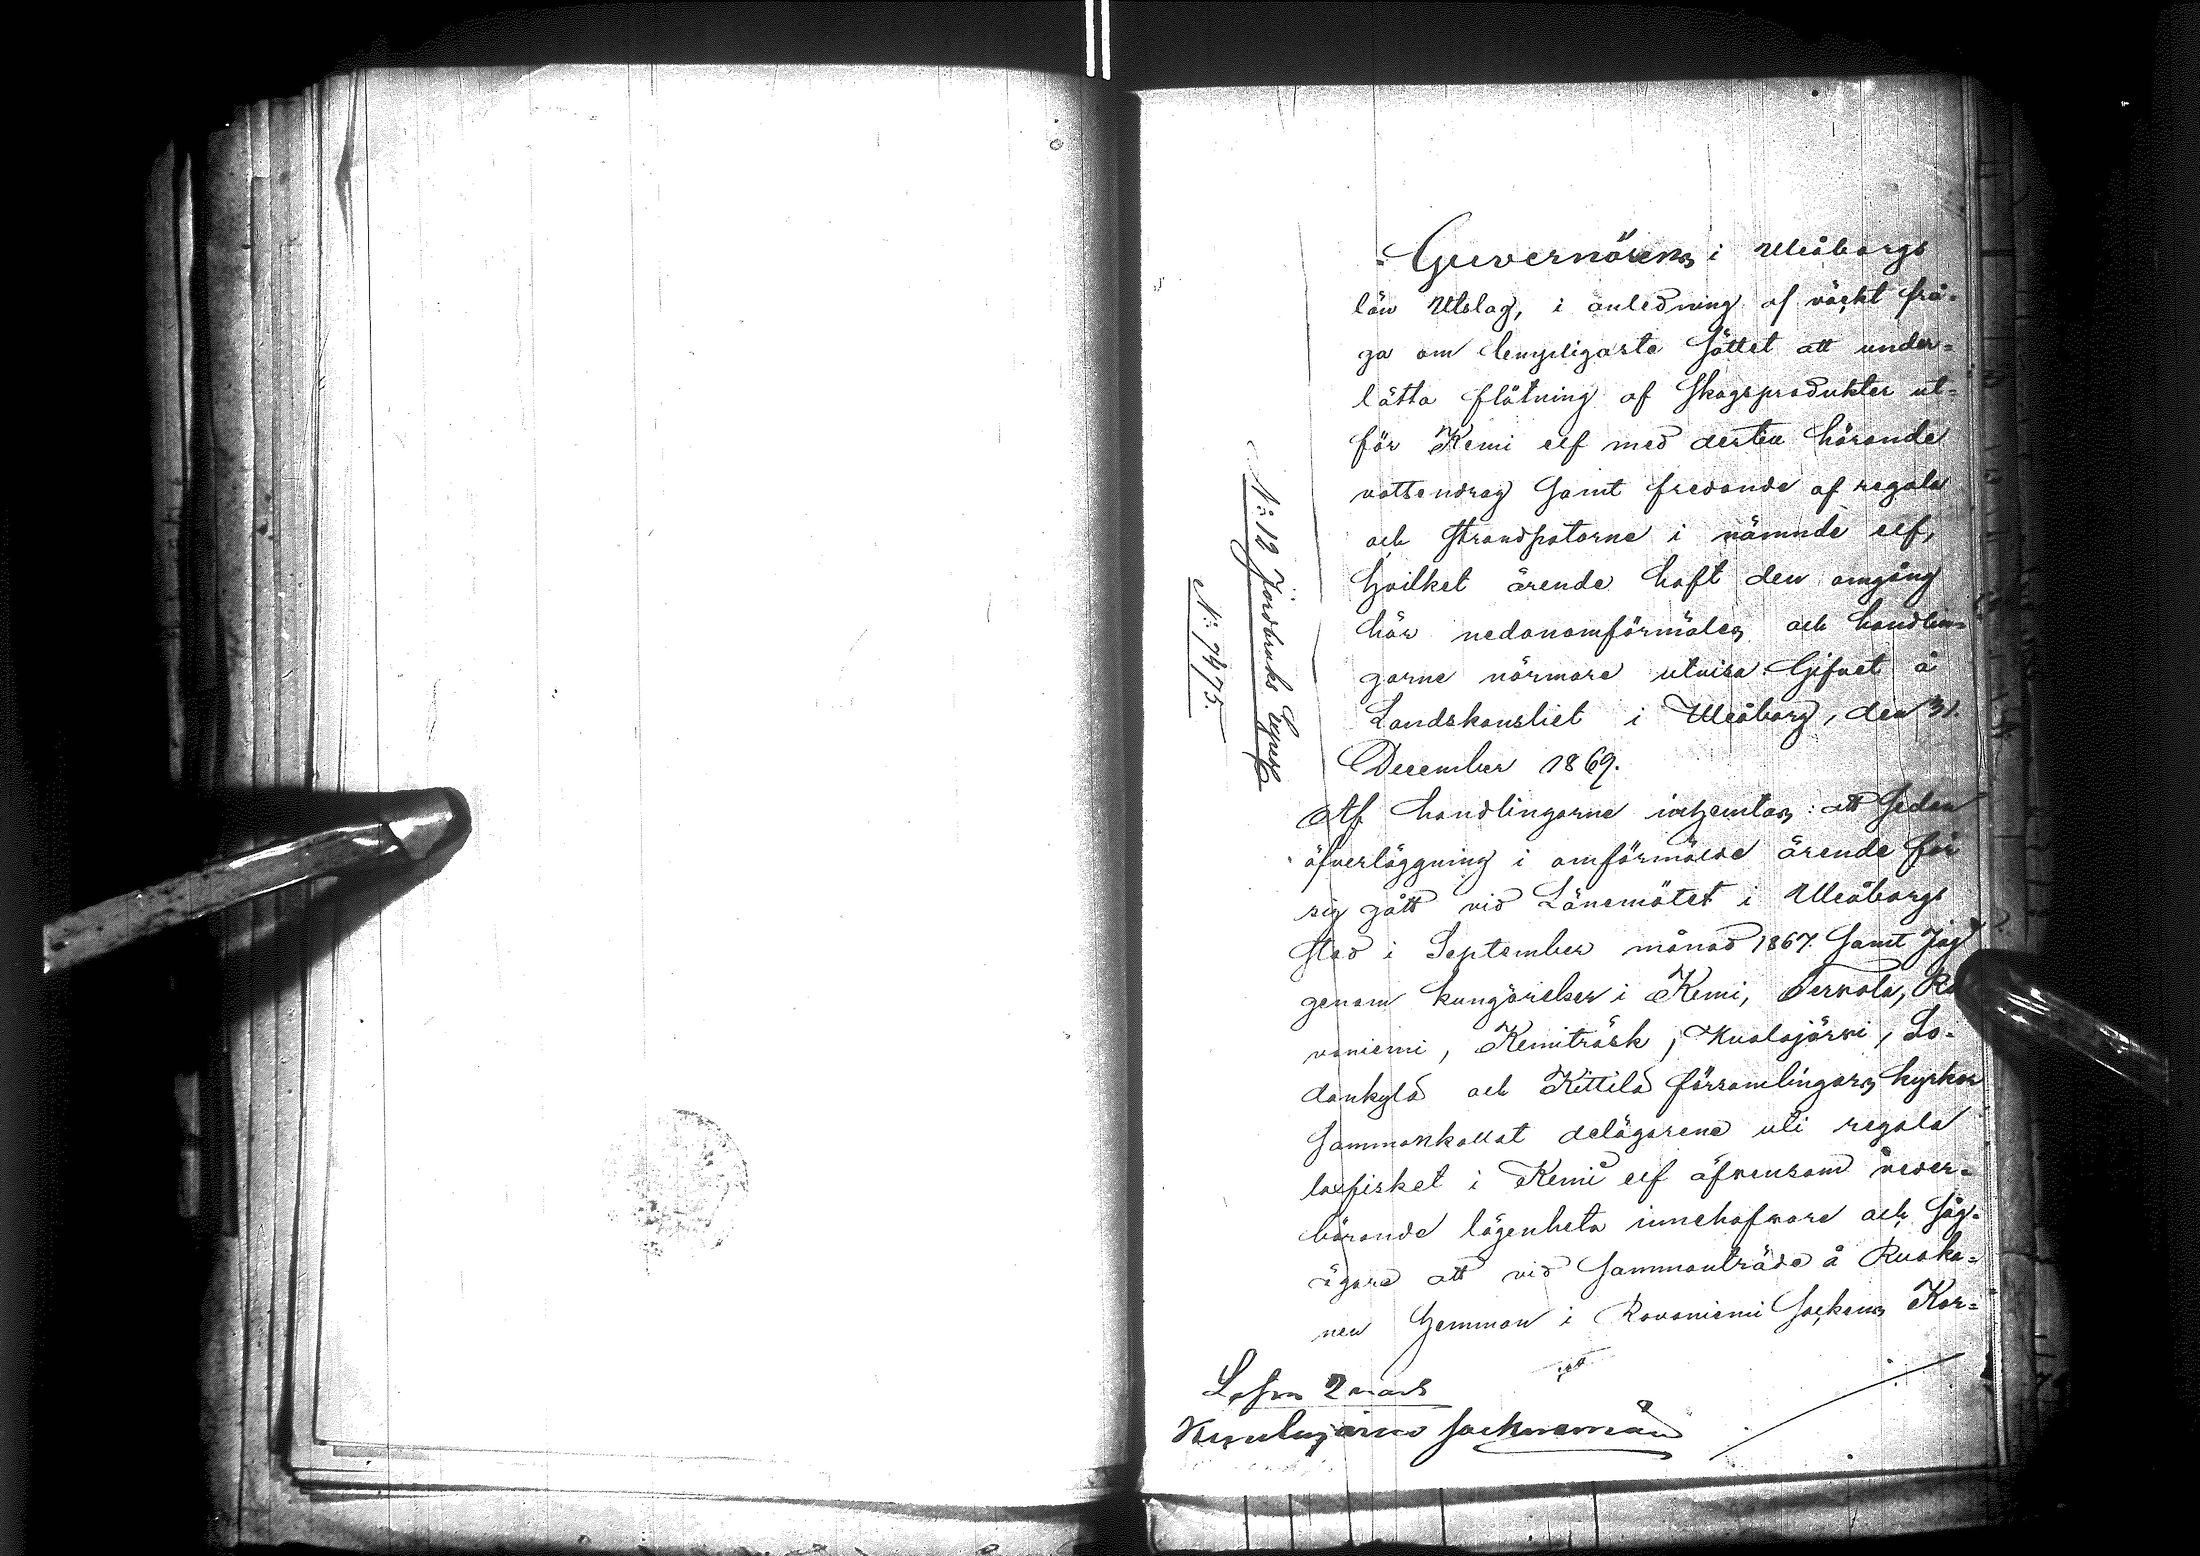 Guvernörens i Uleåborgs
län Utslag, i anledning af väckt frå-
ga om lempligaste sättet att under-
lätta flötning af skogsprodukter ut-
för Kemi elf med dertill hörande
vattendrag samt fredande af regala
och strandpatorne i nämnde elf,
hvilket ärende haft den omgång
här nedanomförmäles och handlin-
garne närmare utvisa. Gifvet å
Landskansliet i Uleåborg, den 31.
December 1869.
N: 12 Jordbruks
N: 7475.
Af handlingarne inhemtas: att sedan
öfverläggning i omförmälde ärende för
sig gått vid Länemötet i Uleåborgs
stad i September månad 1867. samt jag
genom kungörelser i Kemi, Tervola, Ro
vaniemi, Kemiträsk, Kuolajärvi, So-
dankylä och Kittilä församlingars kyrkor
sammankallat delägarene uti regala
laxfisket i Kemi elf äfvensom veder-
börande lägenhets innehafvare och såg-
ägare att vid sammanträde å Ruoka-
nen hemman i Rovaniemi sockens Kor-
Lösen 2 mark
Kuolajärvi sockneman